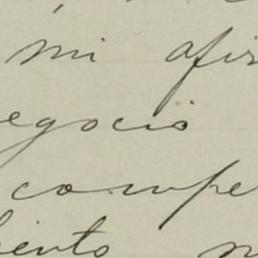 mi afir
egocio
compe
iento